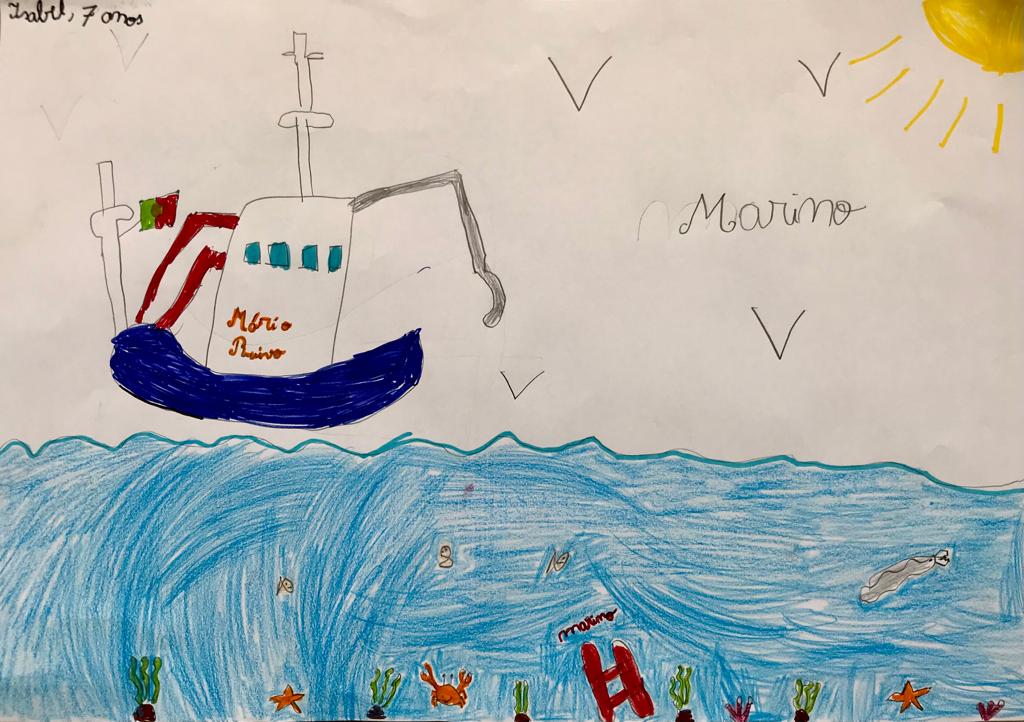 Isabel, 7 anos
Marino
Mário
Ruivo
marino